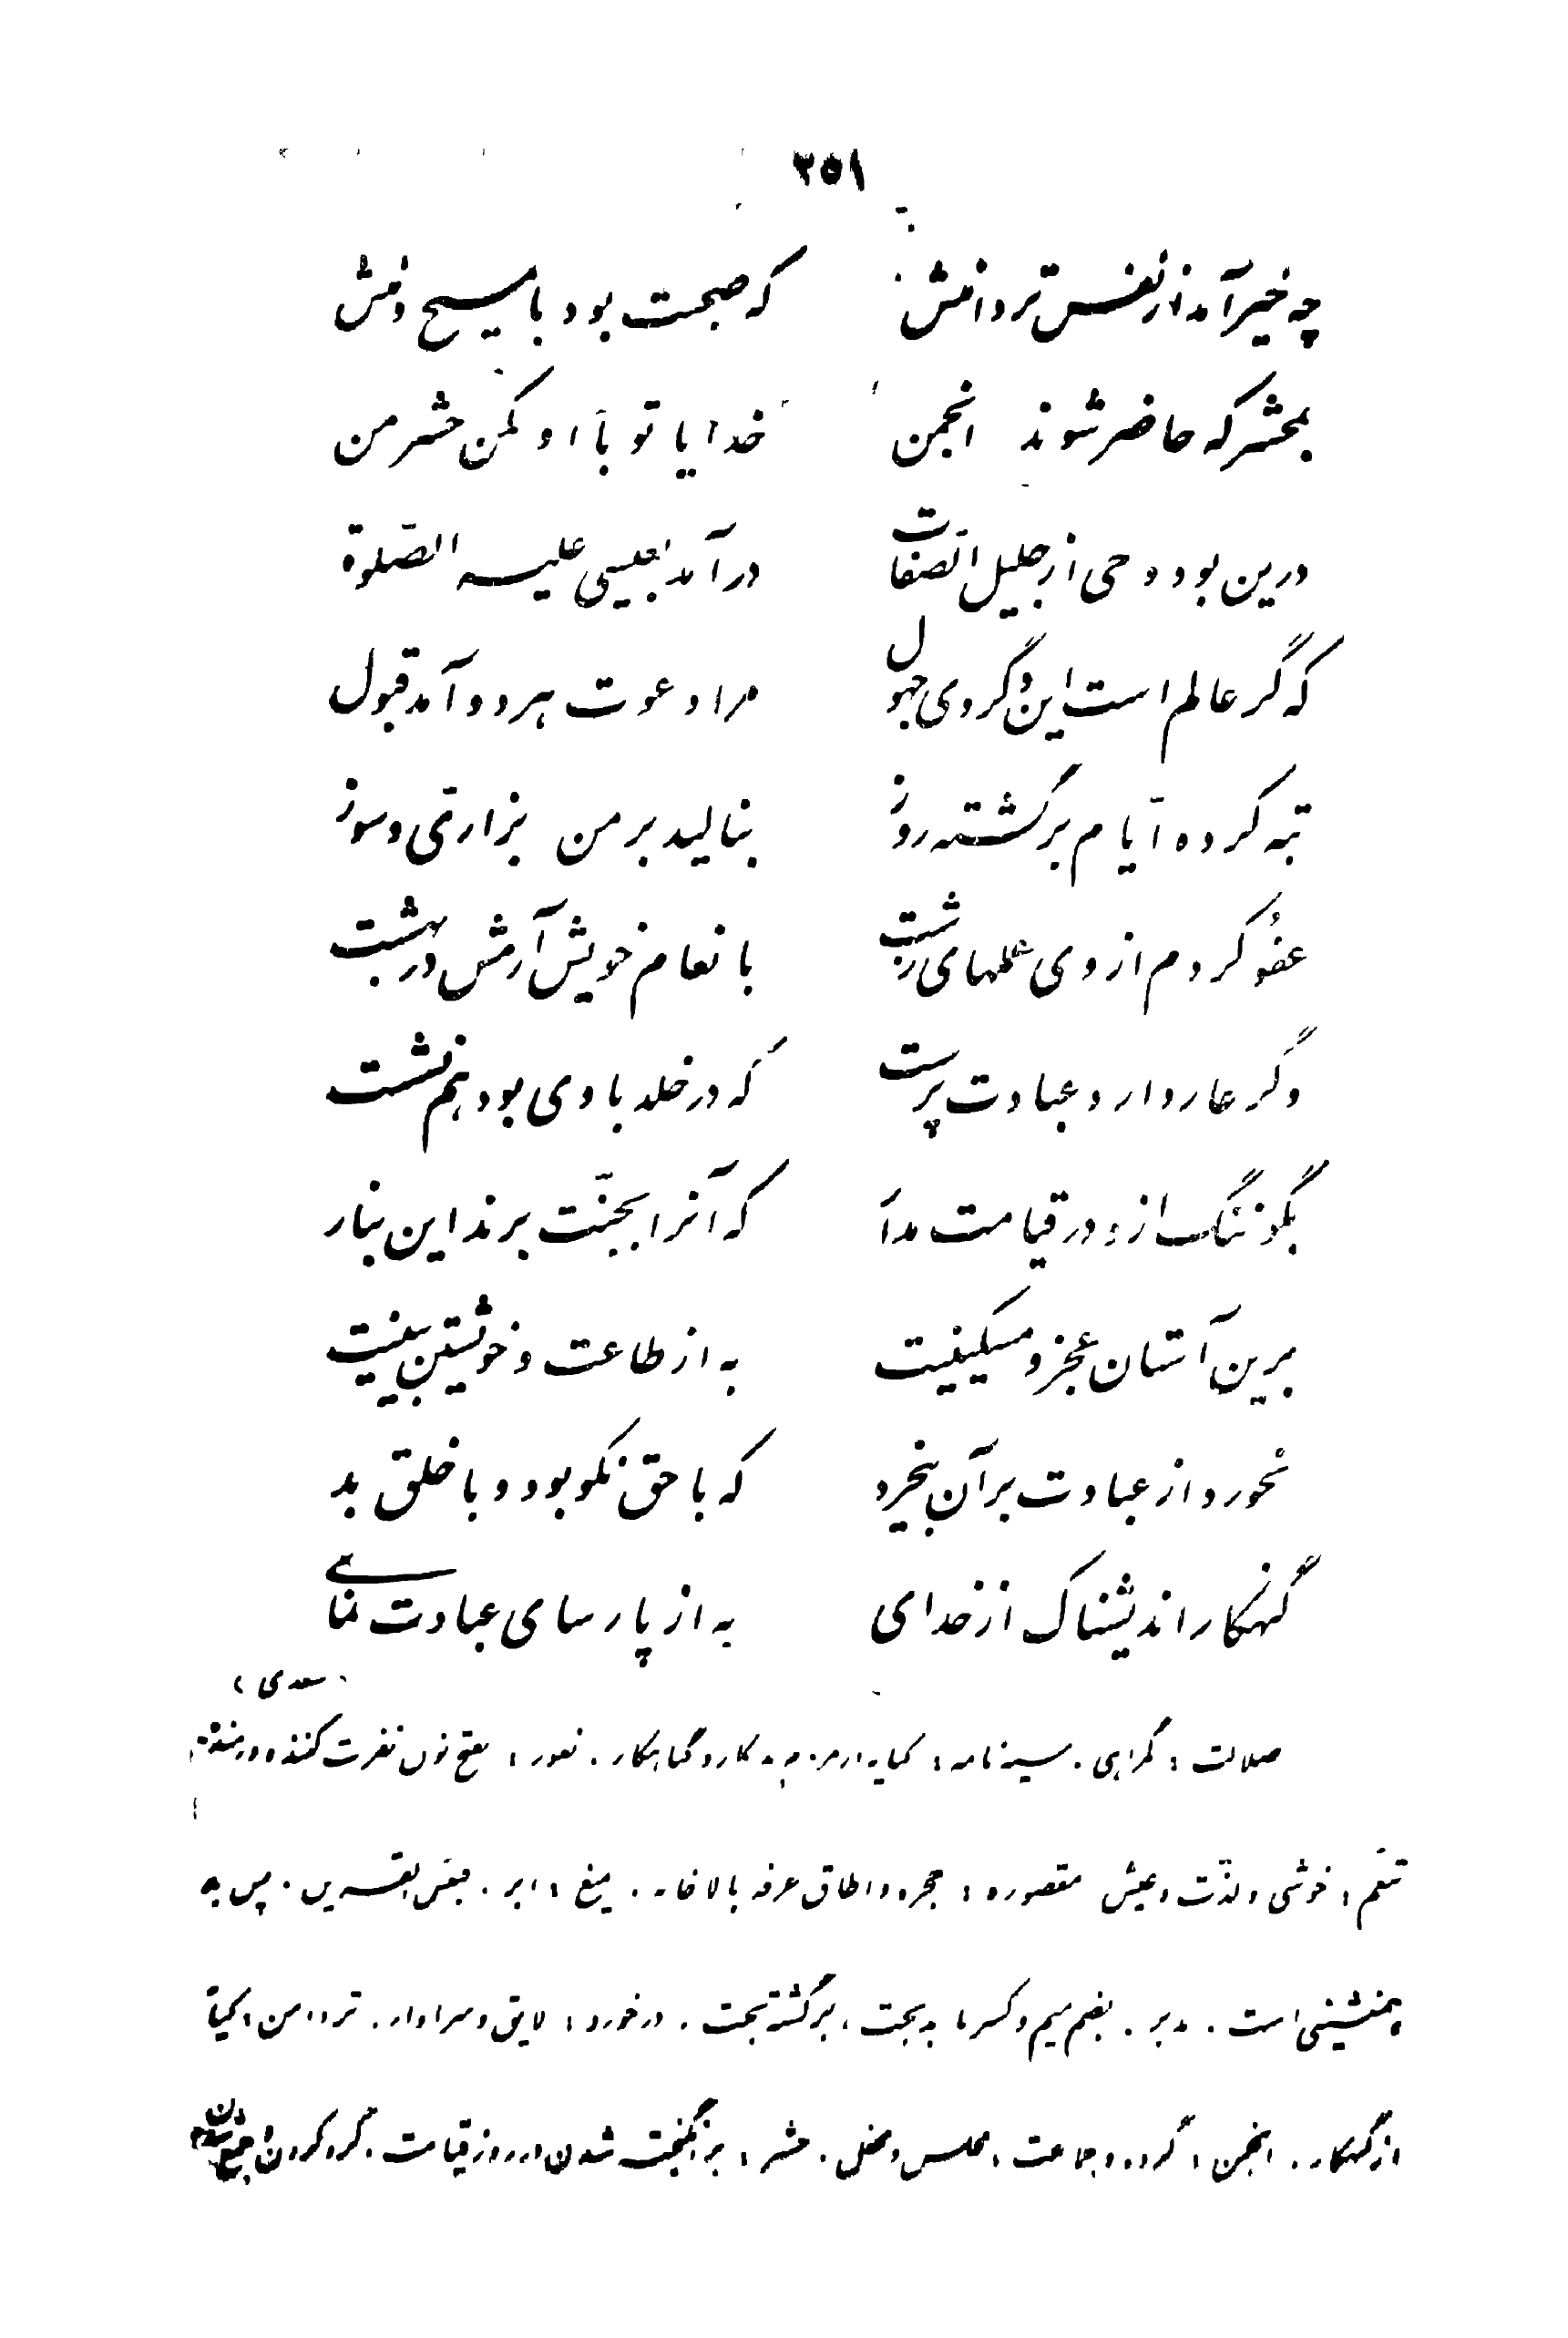 ۳۵۱
چه خیر آمد از نفس تر دامنش که صحبت بود با مسیح و منش
بمحشر که حاضر شوند انجمن خدایا تو با او مکن حشر من
درین بود و وحی از جلیل الصفات درآمد بعیسی علیه الصّلوة
که گر عالم است این وگر وی جهول مرا دعوت هر دو آمد قبول
تبه کرده ایّام برگشته روز بنالید بر من بزاری و سوز
عفو کردم از وی عملهای زشت بانعام خویش آرمش در بهشت
وگر عار دارد عبادت پرست که در خلد با وی بود هم نشست
بگو ننگ ازو در قیامت مدار که آنرا بجنّت برند این بنار
برین آستان عجز و مسکینیت به از طاعت و خویشتن بینیت
نخورد از عبادت بر آن بیخرد که با حق نکو بود و با خلق بد
گنهکار اندیشناک از خدای به از پارسای عبادت نمای
(سعدی)
ضلالت : گمراهی . سیه نامه : کنایه از مردم بد کار و گناهکار . نفور : بفتح نون نفرت کننده و رمنده
تنعّم : خوشی و لذّت و عیش مقصوره : حجره و اطاق غرفه بالا خانه . میغ : ابر . فبئس القرین . پس بد
همنشینی است . مدبر . بضم میم و کسر با بدبخت ، برگشته بخت . درخورد : لایق و سزاوار . تر دامن : کنایه
از گنهکار . انجمن : گروه و جماعت ، مجلس و محفل . حشر : برانگیخت شدن در روز قیامت ، گرد کردن و جمع شدن